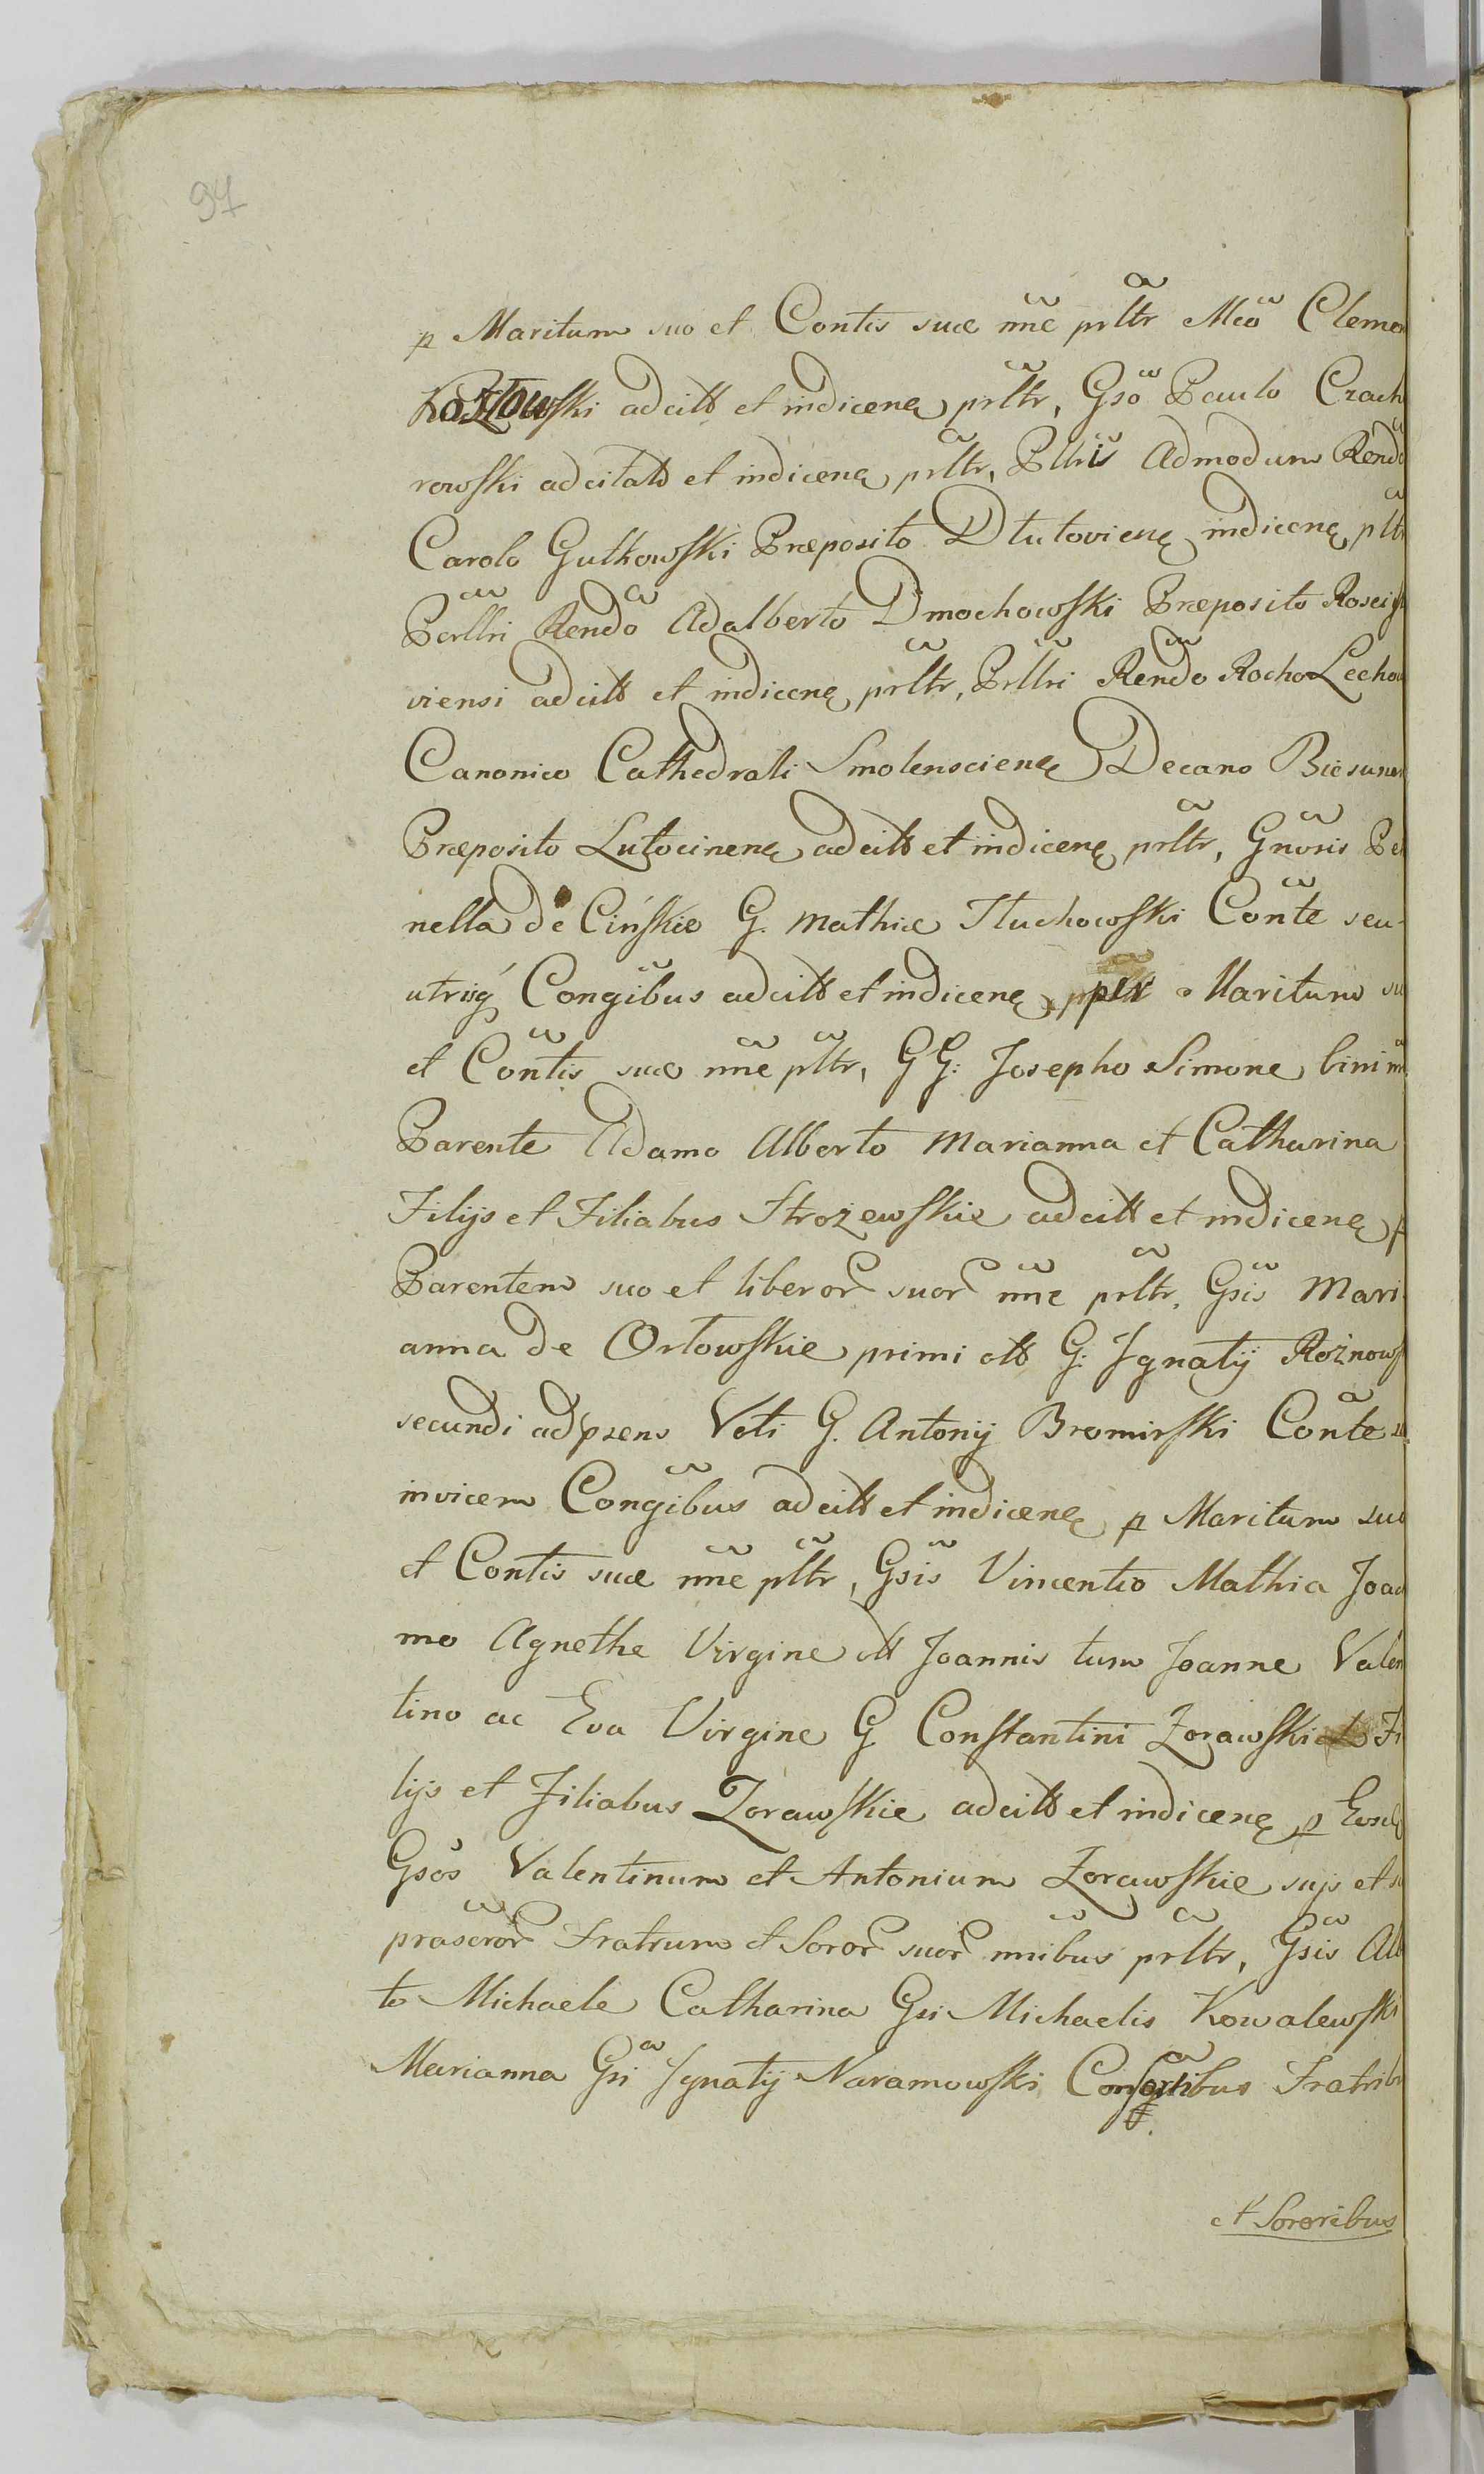 97
p Maritum suo et Contis suæ nne prltr Mco Clemen
Kozłowski adcitt et indicenę prltr, Gso Paulo Czach
rowski adcitatt et indicenę prltr, Plbris Admodum Rendo
Carolo Gutkowski Præposito Dłutovienę indicenę pltr
Perllri Rendo Adalberto Dmochowski Præposito Rosciszo
viensi adcitt et indicenę prltr, Prllri Rendo Rocho Lechow
Canonico Cathedrali Smolenscienę Decano Biesunen
Præposito Lutocinenę adcitt et indicenę prltr, Gnosis Pet
nella de Cińskie G. Mathiæ Tłuchowski Conte seu
utriusq Congibus adcitt et indicenę p Maritum su
et Contis suæ nne pltr, GG: Josepho Simone bini nn
Parente Adamo Alberto Marianna et Catharina
Filijs et Filiabus Strozewskie adcitt et indicenę p
Parentem suo et liberor suor nne prltr, Gsis Mari
anna de Orłowskie primi ott G: Ignatij Rożnows
secundi adpræns Voti G. Antonij Bromirski Conte su
invicem Congibus adcitt et indicenę p Maritum suo
et Contis suæ nne pltr, Gsis Vincentio Mathia Joac
mo Agnethe Virgine ott Joannis tum Joanne Valen
tino ac Eva Virgine G Constantini Zorawski Fi
lijs et Filiabus Zorawskie adcitt et indicenę p Eosd
Gsos Valentinum et Antonium Zorawskie sujs et su
prascror Fratrum et Soror suor nnibus prltr, Gsis Alb
to Michaele Catharina Gsi Michaelis Kowalewski
Marianna Gsi Ignatij Naramowski Consortibus Fratribu
et Sororibus